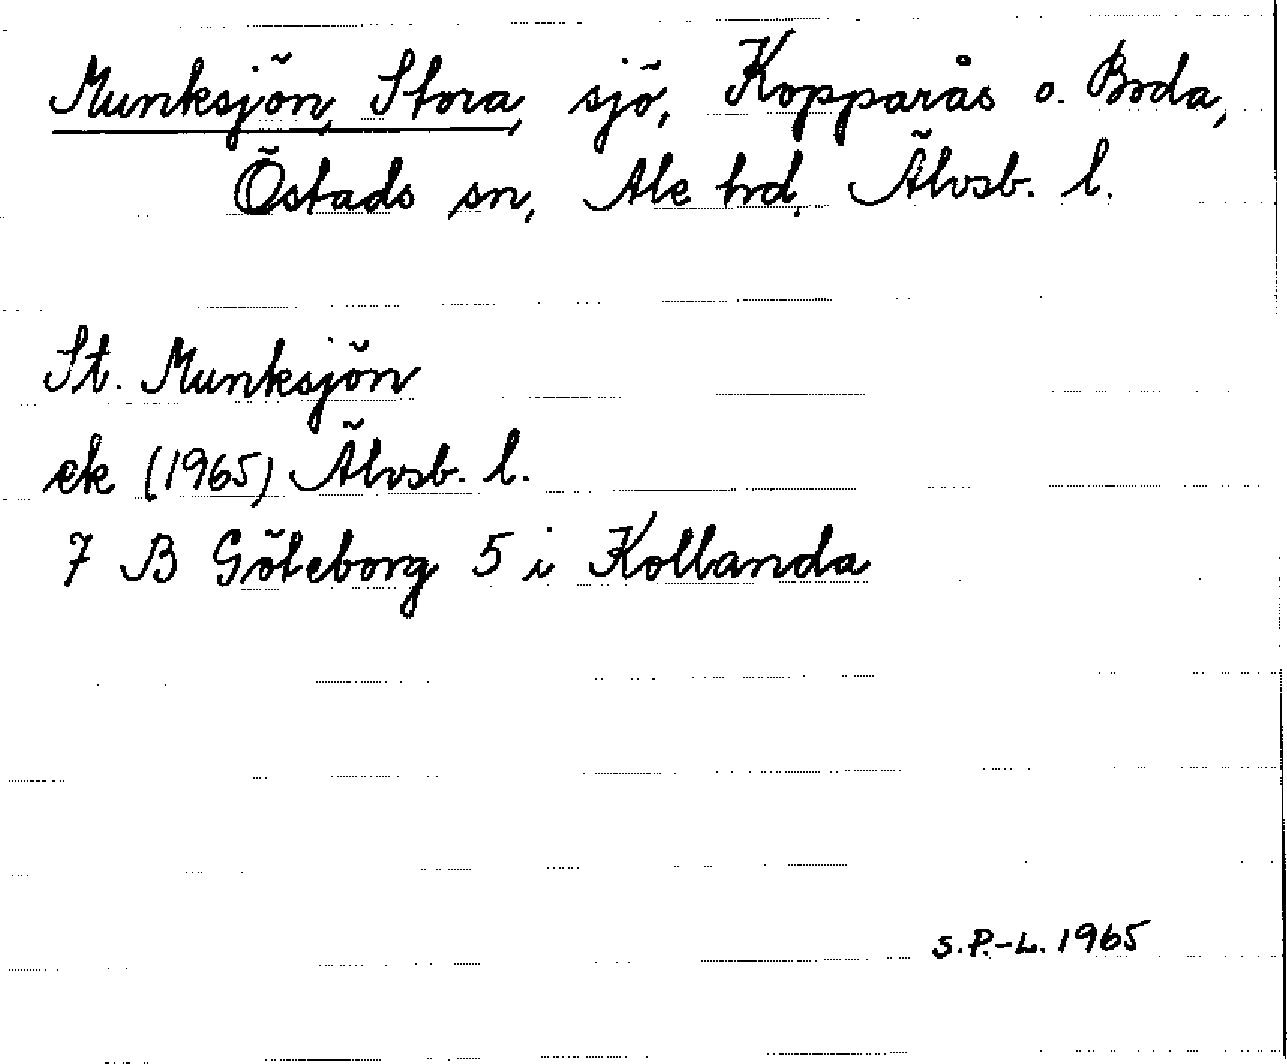 Munksjön, Stora, sjö, Kopparås o. Boda,
Östads sn, Ale hd, Älvsb. l.
St. Munksjön
ek (1965) Älvsb. l.
7 B Göteborg 5 i Kollanda
S.P.-L. 1965